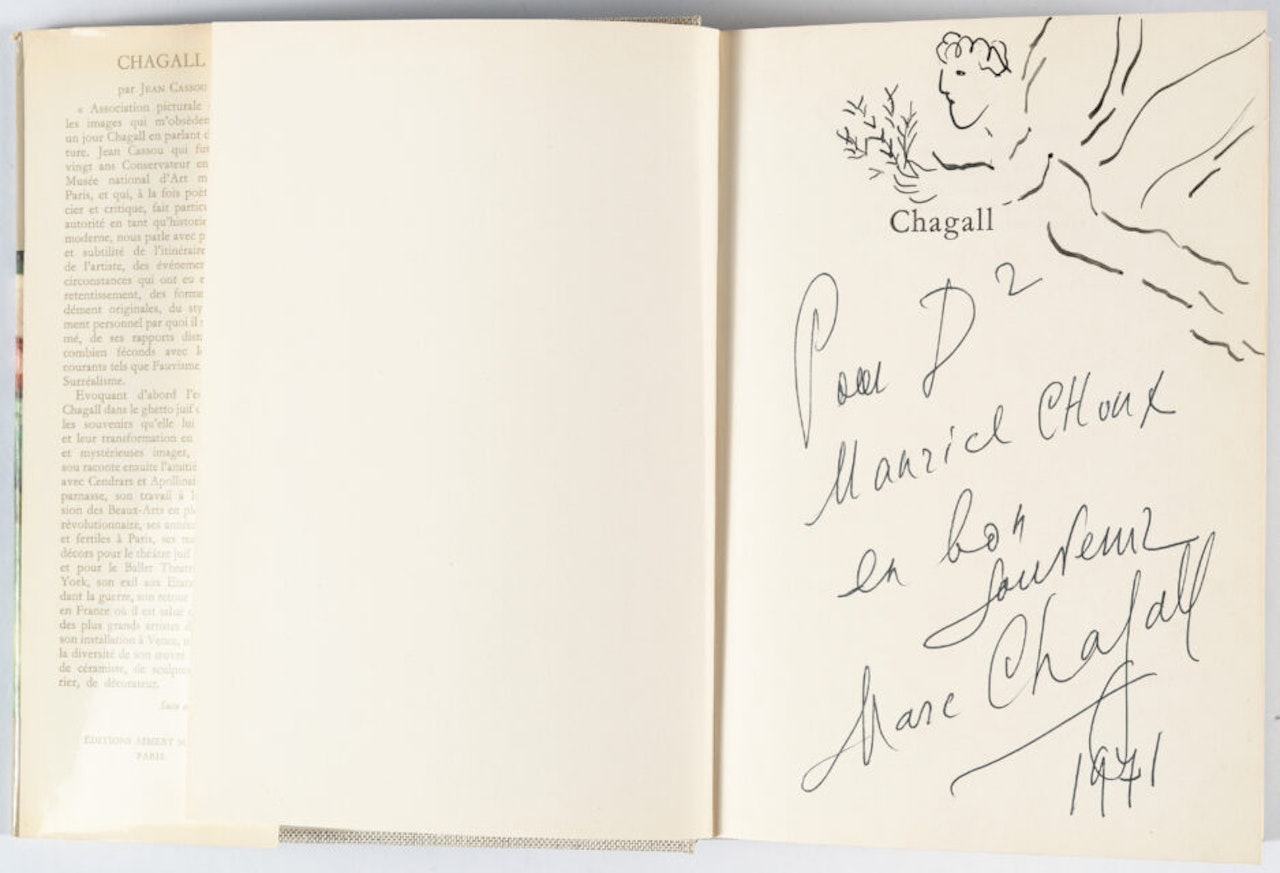 CHAGALL
par JEAN CASSOU
« Association picturale
les images qui m'obsèden
un jour Chagall en parlant d
ture. Jean Cassou qui fut
vingt ans Conservateur en
Musée national d'Art m
Paris, et qui, à la fois poèt
cier et critique, fait partic
autorité en tant qu'historie
moderne, nous parle avec p
et subtilité de l'itinéraire
de l'artiste, des événemen
circonstances qui ont eu
retentissement, des forme
dément originales, du sty
ment personnel par quoi il
mé, de ses rapports dist
combien féconds avec l
courants tels que Fauvisme
Surréalisme.
Evoquant d'abord l'e
Chagall dans le ghetto juif
les souvenirs qu'elle lui
et leur transformation en
et mystérieuses images,
sou raconte ensuite l'amitié
avec Cendrars et Apollinai
parnasse, son travail à l
sion des Beaux-Arts en pl
révolutionnaire, ses année
et fertiles à Paris, ses
décors pour le théâtre juif
et pour le Ballet Theatr
York, son exil aux Etats
dant la guerre, son retour
en France où il est salué
des plus grands artistes d
son installation à Vence,
la diversité de son œuvre
de céramiste, de sculpte
tier, de décorateur.
ÉDITIONS ALBERT
PARIS
Chagall
Pour D²
Maurice CHoux
en bon
souvenir
Marc Chagall
1971